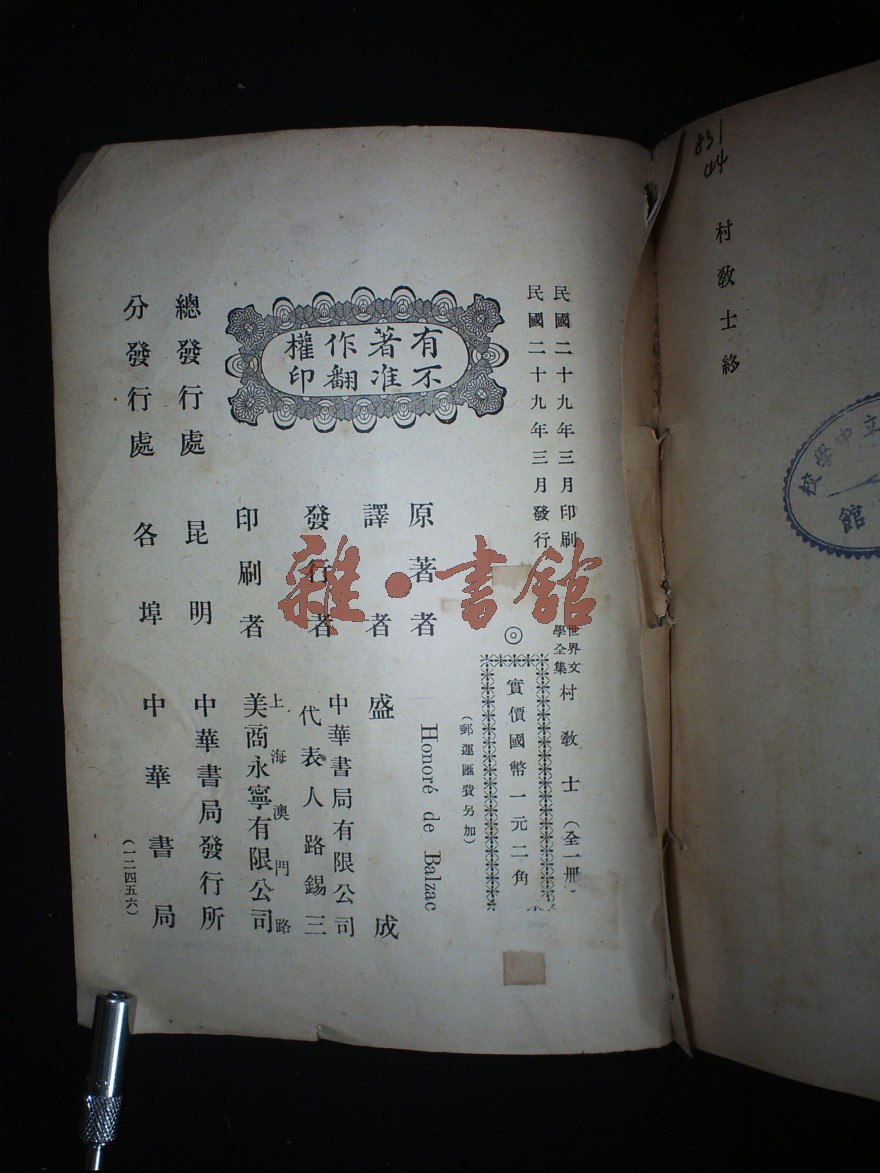 831
44
村教士終
立中學校
館
民國二十九年三月印刷
民國二十九年三月發行
世界文
學全集
村教士(全一冊)
◎
實價國幣一元二角
(郵運匯費另加)
有著作權
不准翻印
原著者 Honoré de Balzac
譯者 盛成
發行者 中華書局有限公司
代表人路錫三
印刷者 上海澳門路
美商永寧有限公司
總發行處 昆明 中華書局發行所
分發行處 各埠 中華書局
(一二四五六)
雜·書館